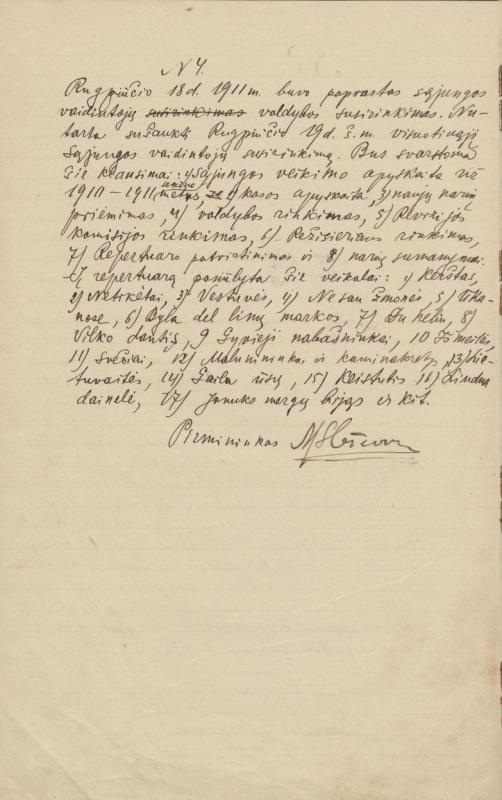 N 4.
Rugpiučio 18 d. 1911 m. buvo paprastas sąjungos
vaidintojų susirinkimas valdybos susirinkimas. Nu-
tarta sušaukti Rugpiučio 19 d. š. m. visuotinąjį
Sąjungos vaidintojų susirinkimą. Bus svarstoma
šie klausimai: 1) Sąjungos veikimo apyskaita už
1910–1911 metus 2) kasos apyskaita, 3) naujų narių
priėmimas, 4) valdybos rinkimas, 5) Revizijos
komisijos rinkimas, 6) Režisieriaus rinkimas,
7) Repertuaro patvirtinimas ir 8) narių sumanymai.
Į repertuarą pasiūlyta šie veikalai: 1) Kerštas,
2) Netikėtai, 3) Vestuvės, 4) Ne sau žmonės, 5) Uka-
nose, 6) Byla del linų markos, 7) Du keliu, 8)
Vilko dantįs, 9 Gyvieji nabašninkai, 10
11) Svečiai, 12) Malunininkas ir kaminakretys, 13) Lie-
tuvaitės, 14) Gaila ūsų, 15) Keistutis 16)
dainelė, 17) Jonuks mergų bijąs ir kit.
Pirmininkas